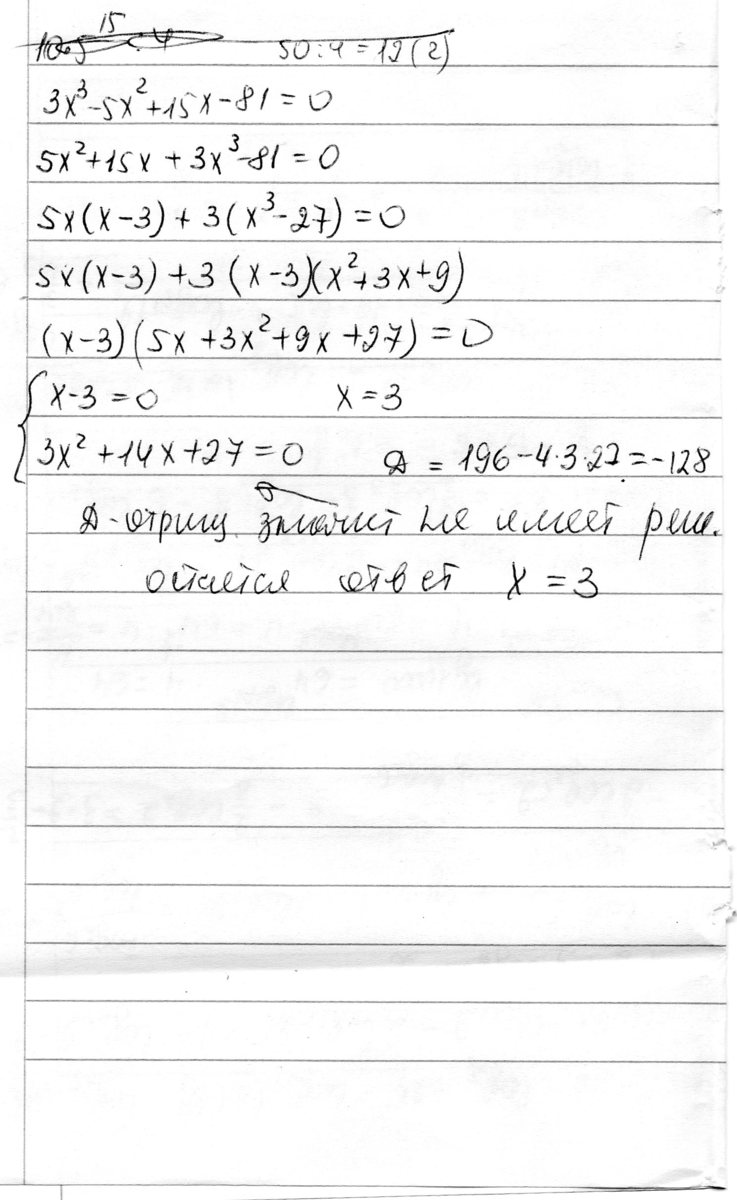 15
50:4=12(2)
3x³-5x²+15x-81=0
5x²+15x+3x³-81=0
5x(x-3)+3(x³-27)=0
5x(x-3)+3(x-3)(x²+3x+9)
(x-3)(5x+3x²+9x+27)=0
x-3=0 x=3
3x²+14x+27=0 D=196-4·3·27=-128
D-отриц. значит не имеет реш.
остаётся ответ x=3